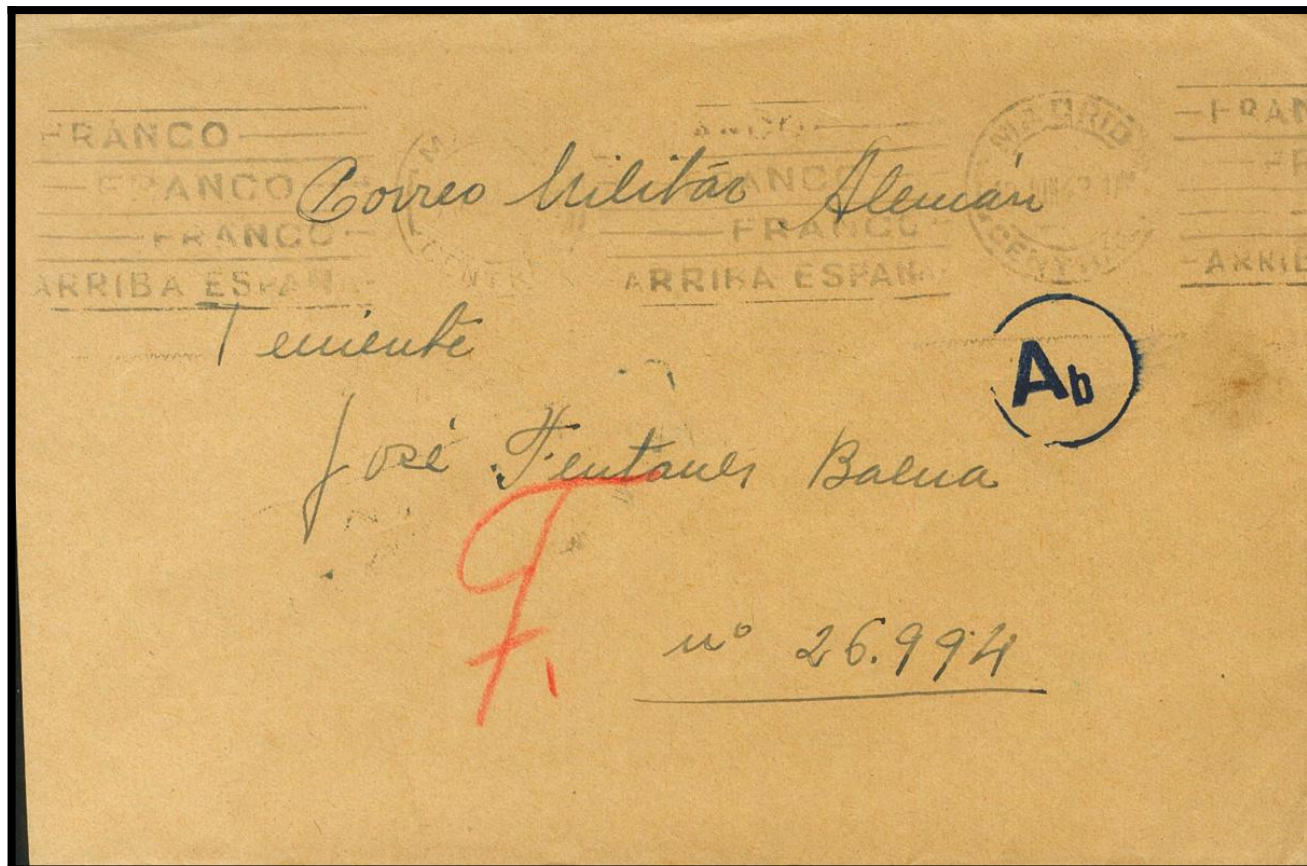 FRANCO
FRANCO
FRANCO
ARRIBA ESPAÑ
CENTR
ANCO
FRANCO
ARRIBA ESPAÑ
MADRID
CENT
FRAN
ARRIB
Correo Militar Alemán
Teniente
Ab
José Fentanes Baena
F.
nº 26.994